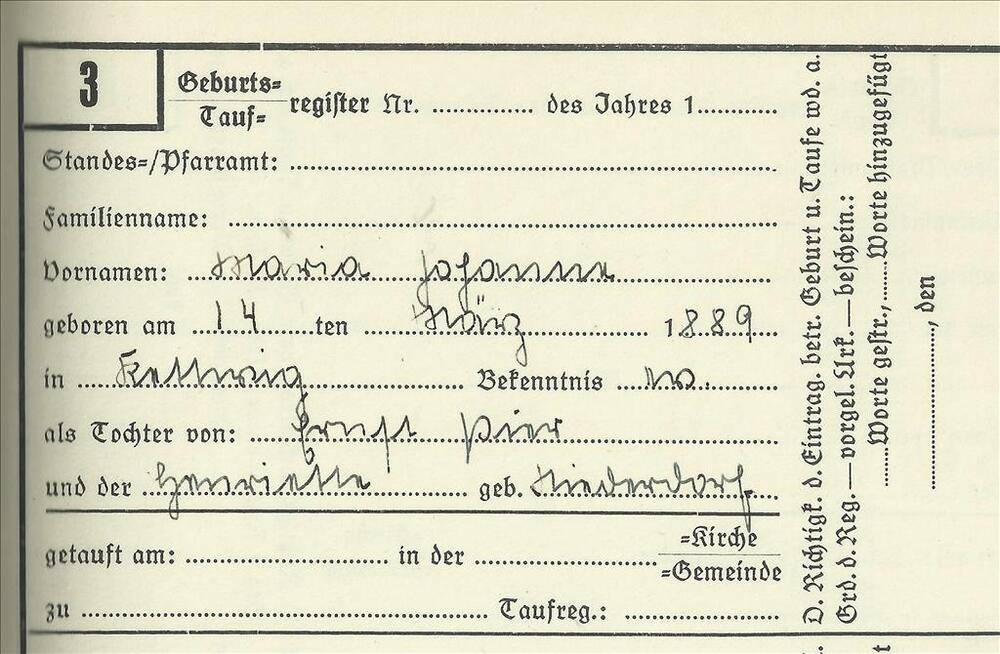 3
Geburts=
Tauf=
register Nr. ............... des Jahres 1............
Standes=/Pfarramt: ............
Familienname: ............
Vornamen: Maria Johanne
geboren am 14 ten März 1889
in Kettwig Bekenntnis
als Tochter von: Ernst Pier
und der Henriette geb. Niederdorf
getauft am: ............ in der ............ =Kirche
=Gemeinde
zu ............ Taufreg.: ............
D. Richtigk. d. Eintrag. betr. Geburt u. Taufe wd. a.
Grd. d. Reg. — vorgel. Urk. — beschein.:
......Worte gestr., ...... Worte hinzugefügt
............, den